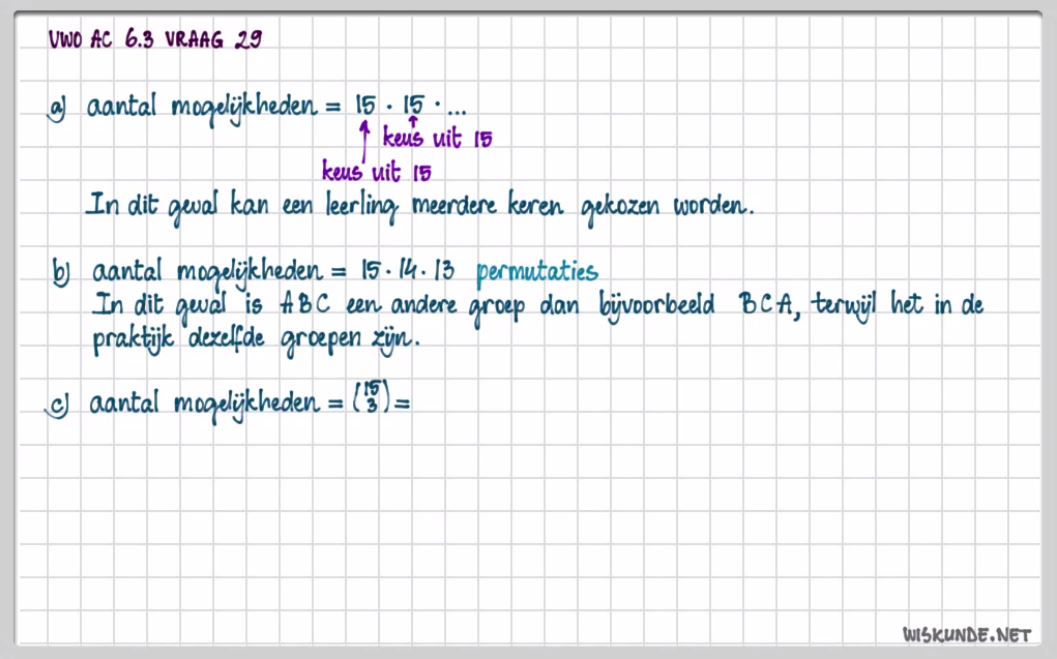 VWO AC 6.3 VRAAG 29
a) aantal mogelijkheden = 15 · 15 · ...
keus uit 15
keus uit 15
In dit geval kan een leerling meerdere keren gekozen worden.
b) aantal mogelijkheden = 15 · 14 · 13 permutaties
In dit geval is ABC een andere groep dan bijvoorbeeld BCA, terwijl het in de
praktijk dezelfde groepen zijn.
c) aantal mogelijkheden = (15 3) =
WISKUNDE.NET